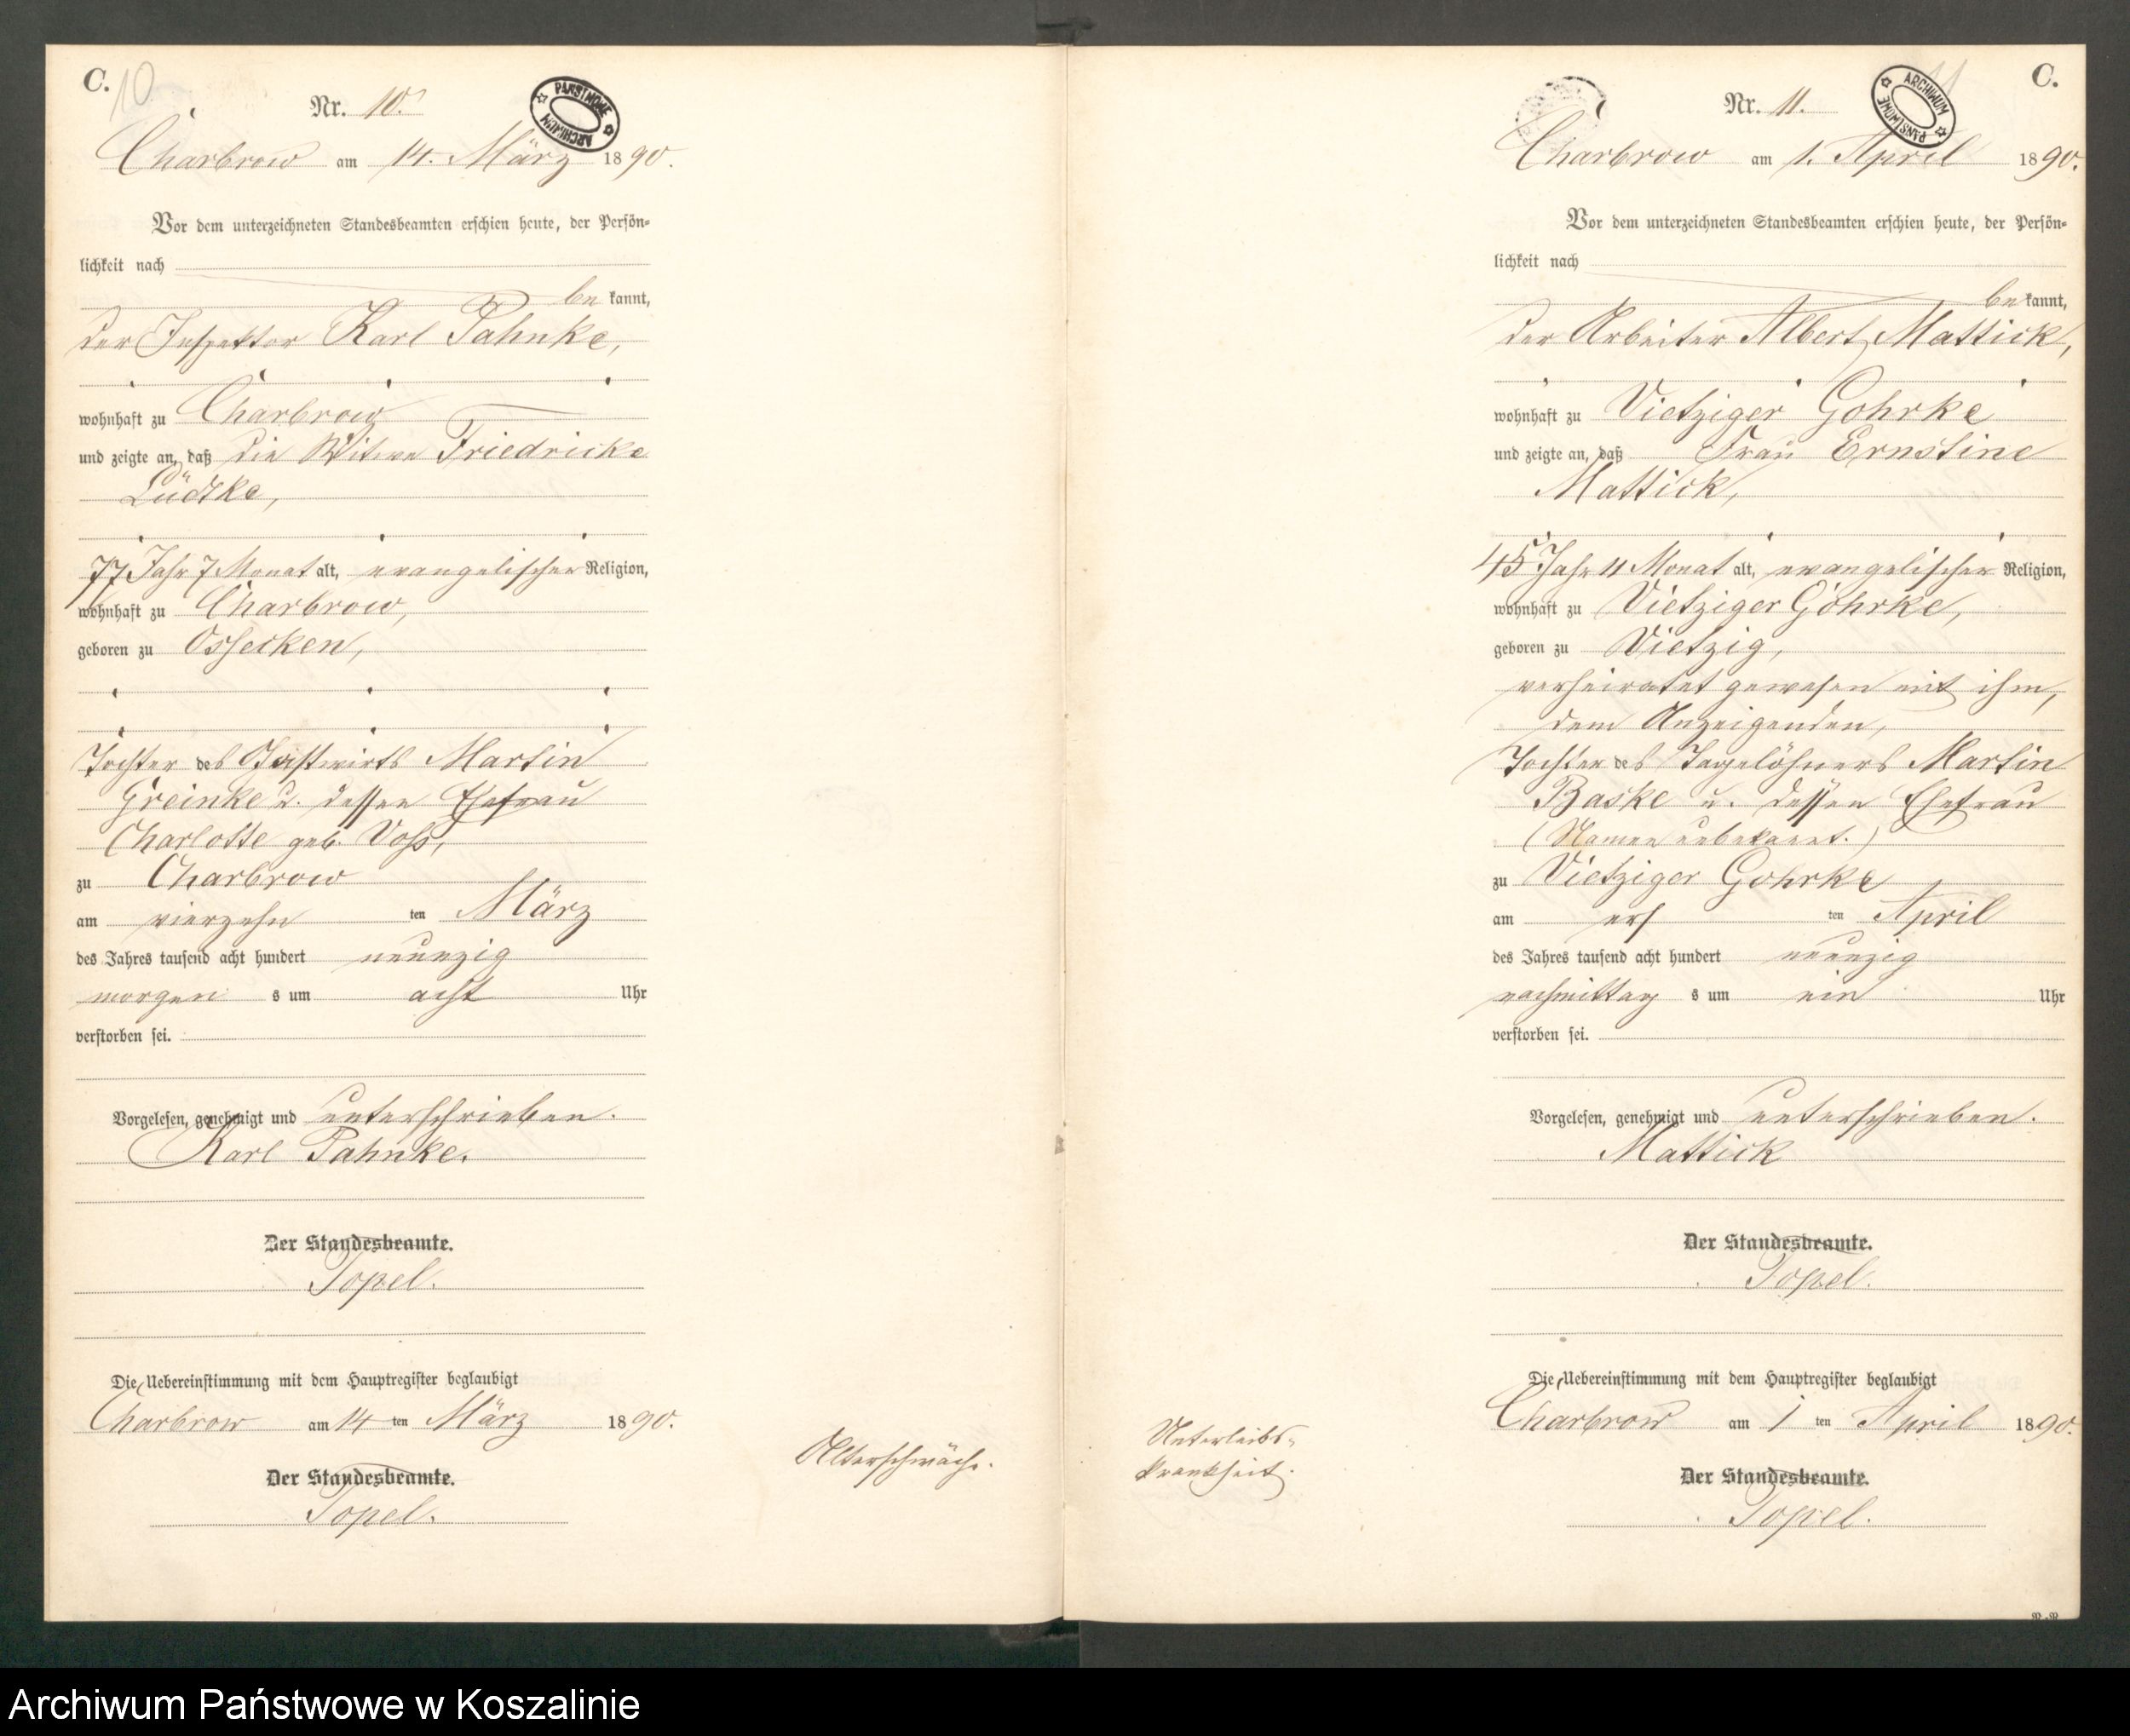 C.
10
Nr. 10.
PAŃSTWOWE
ARCHIWUM
Charbrow am 14. März 1890.
Vor dem unterzeichneten Standesbeamten erschien heute, der Persön-
lichkeit nach
be kannt,
der Inspektor Karl Pahnke,
wohnhaft zu Charbrow
und zeigte an, daß die Witwe Friedricke
Lüdtke,
77 Jahr 7 Monat alt, evangelischer Religion,
wohnhaft zu Charbrow,
geboren zu Ossecken,
Tochter des Gastwirts Martin
Greinke u. dessen Ehefrau
Charlotte geb. Voß,
zu Charbrow
am vierzehn ten März
des Jahres tausend acht hundert neunzig
morgen s um acht Uhr
verstorben sei.
Vorgelesen, genehmigt und unterschrieben.
Karl Pahnke.
Der Standesbeamte.
Topel.
Die Uebereinstimmung mit dem Hauptregister beglaubigt
Charbrow am 14 ten März 1890.
Der Standesbeamte.
Topel.
Alterschwäche.
C.
11
Nr. 11.
ARCHIWUM
PAŃSTWOWE
Charbrow am 1. April 1890.
Vor dem unterzeichneten Standesbeamten erschien heute, der Persön-
lichkeit nach
be kannt,
der Arbeiter Albert Mattick,
wohnhaft zu Vietziger Gohrke
und zeigte an, daß Frau Ernstine
Mattick,
45 Jahr 11 Monat alt, evangelischer Religion,
wohnhaft zu Vietziger Gohrke,
geboren zu Vietzig,
verheiratet gewesen mit ihm,
dem Anzeigenden,
Tochter des Tagelöhners Martin
Baske u. dessen Ehefrau
(Namen unbekannt.)
zu Vietziger Gohrke
am ers ten April
des Jahres tausend acht hundert neunzig
nachmittag s um ein Uhr
verstorben sei.
Vorgelesen, genehmigt und unterschrieben.
Mattick
Der Standesbeamte.
Topel.
Die Uebereinstimmung mit dem Hauptregister beglaubigt
Charbrow am 1 ten April 1890.
Der Standesbeamte.
Topel.
Unterleibs-
krankheit.
Archiwum Państwowe w Koszalinie